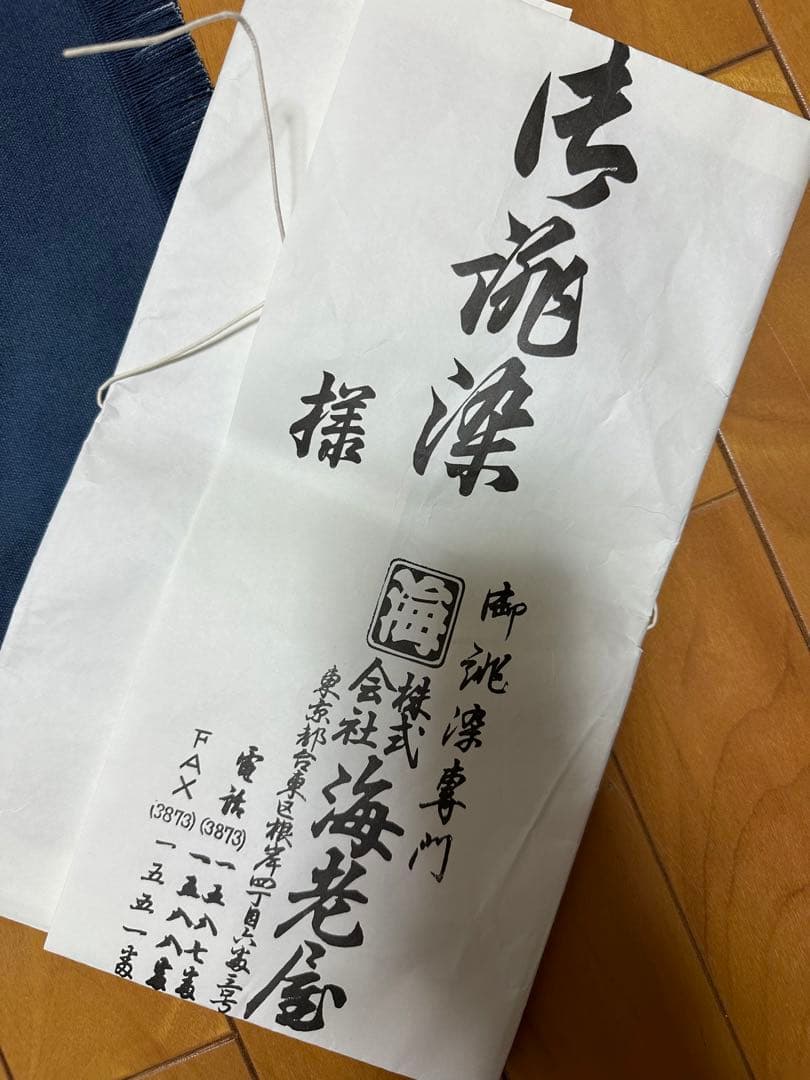 御誂染
様
御誂染専門
海
株式会社
海老屋
東京都台東区根岸四丁目六番三号
電話(3873)一五八七番
一五八八番
FAX(3873)一五五一番